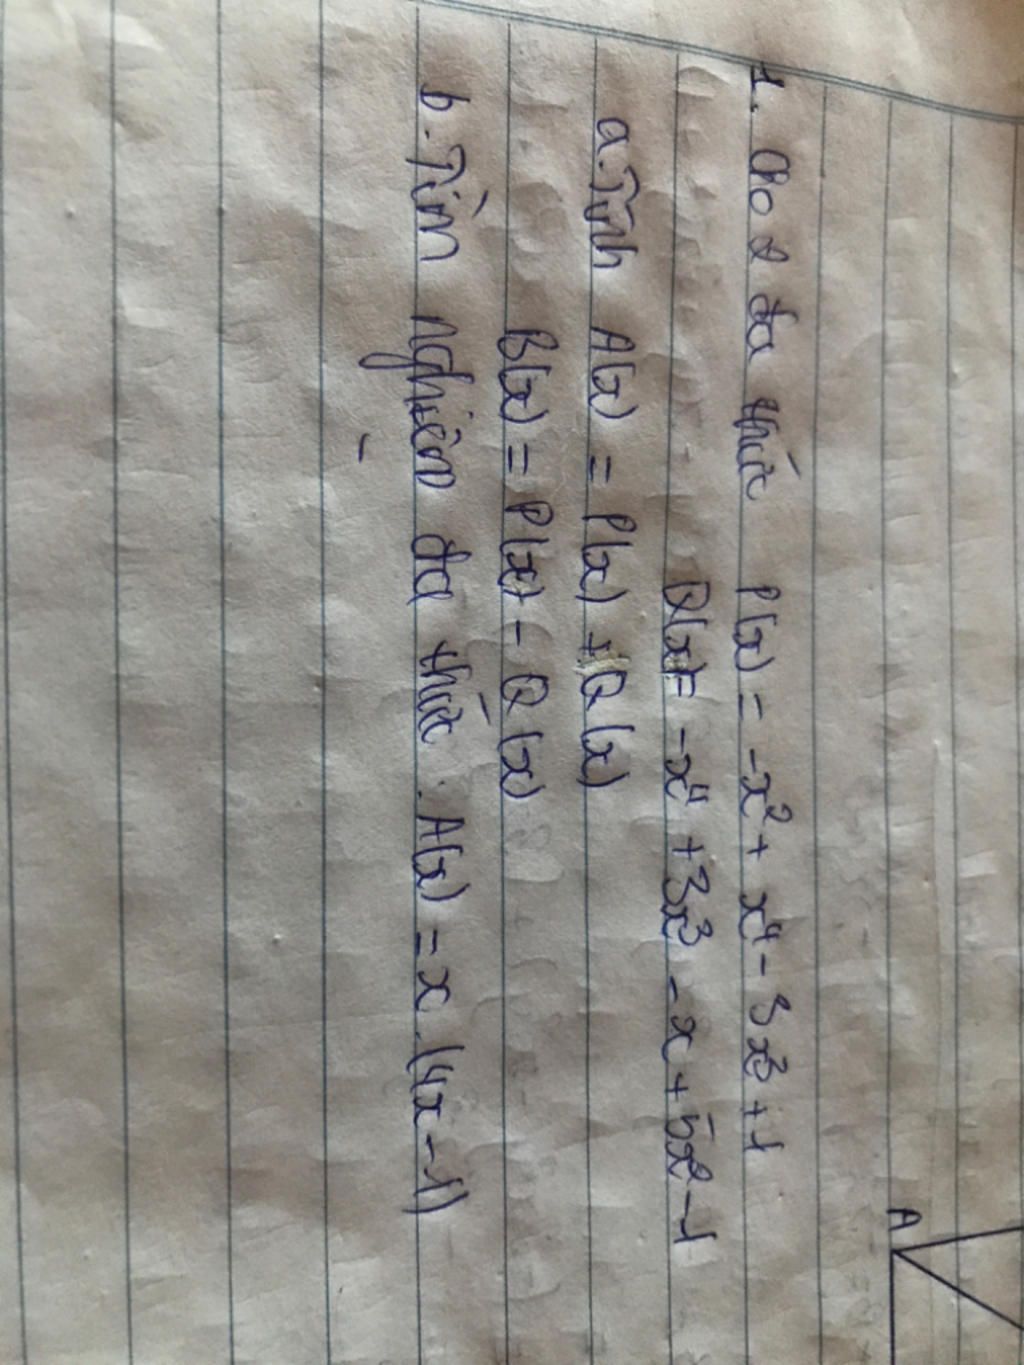 1. Cho 2 đa thức P(x) = -x² + x⁴ - 3x³ + 1
Q(x) = -x⁴ + 3x³ - x + 5x² - 1
a. Tính A(x) = P(x) + Q(x)
B(x) = P(x) - Q(x)
b. Tìm nghiệm đa thức : A(x) = x.(4x-1)
A